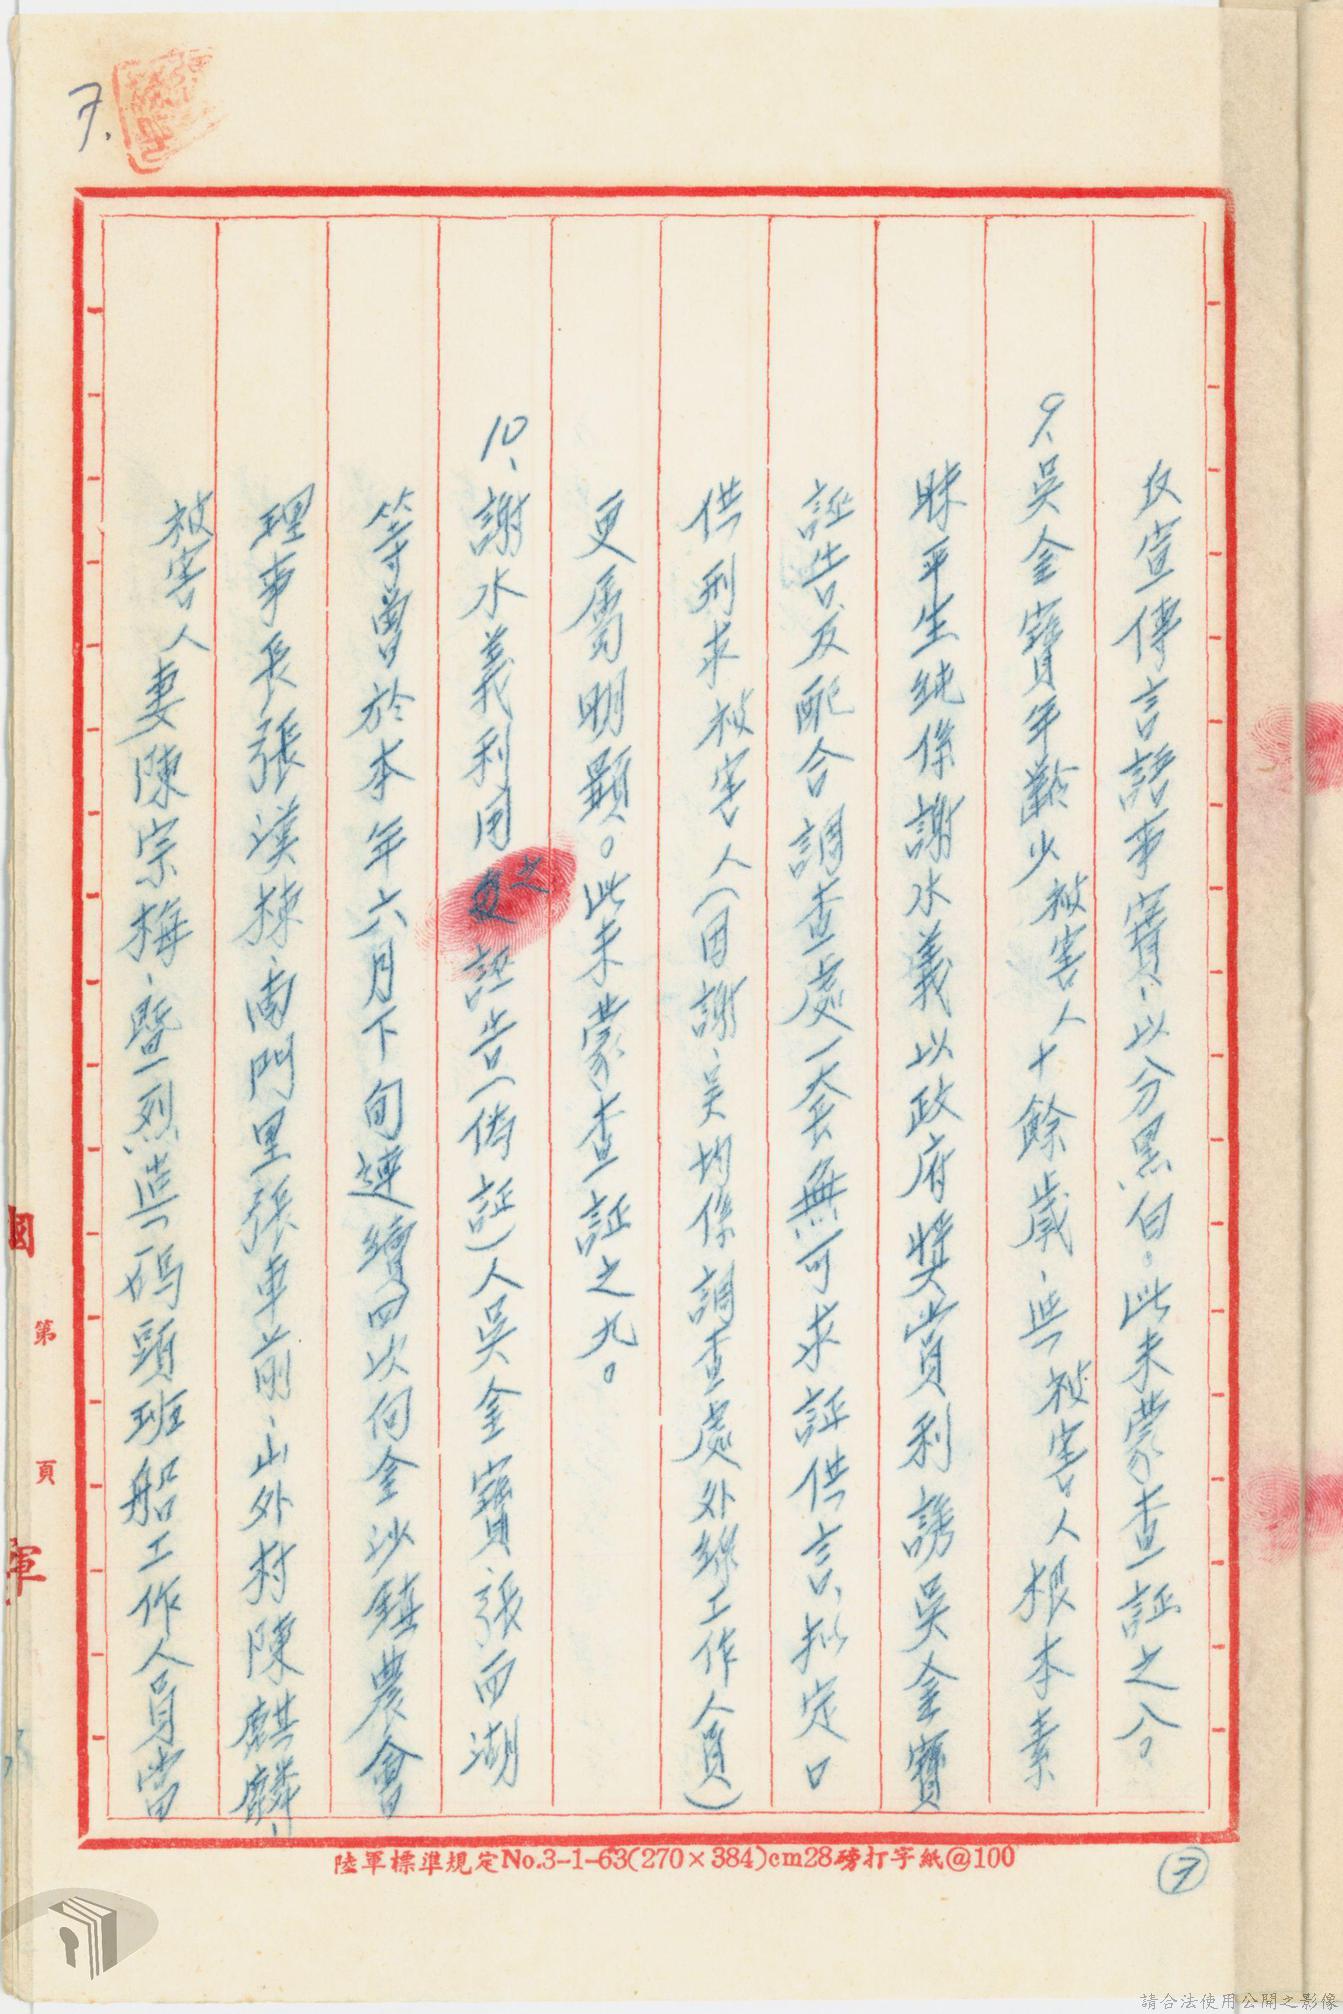 7.
反宣傳言語事實、以分黑白。此未蒙查証之八。
9、吳金寶年齡少被害人十餘歲、與被害人根本素
昧平生純係謝水義以政府獎賞利誘吳金寶
誣告及配合調查處一套無可求証供言、拟定口
供刑求被害人(因謝、吳均係調查處外線工作人員)
更屬明顯。此未蒙查証之九。
10、謝水義利用之誣告(偽証)人吳金寶、張西湖
等曾於本年六月下旬連續四次向金沙鎮農會
理事長張漢棟、南門里張車前、山外村陳麒麟、
被害人妻陳宗梅、暨烈嶼碼頭班船工作人員當
國 軍
第 頁
陸軍標準規定No.3-1-63(270×384)cm28磅打字紙@100
7
請合法使用公開之影像